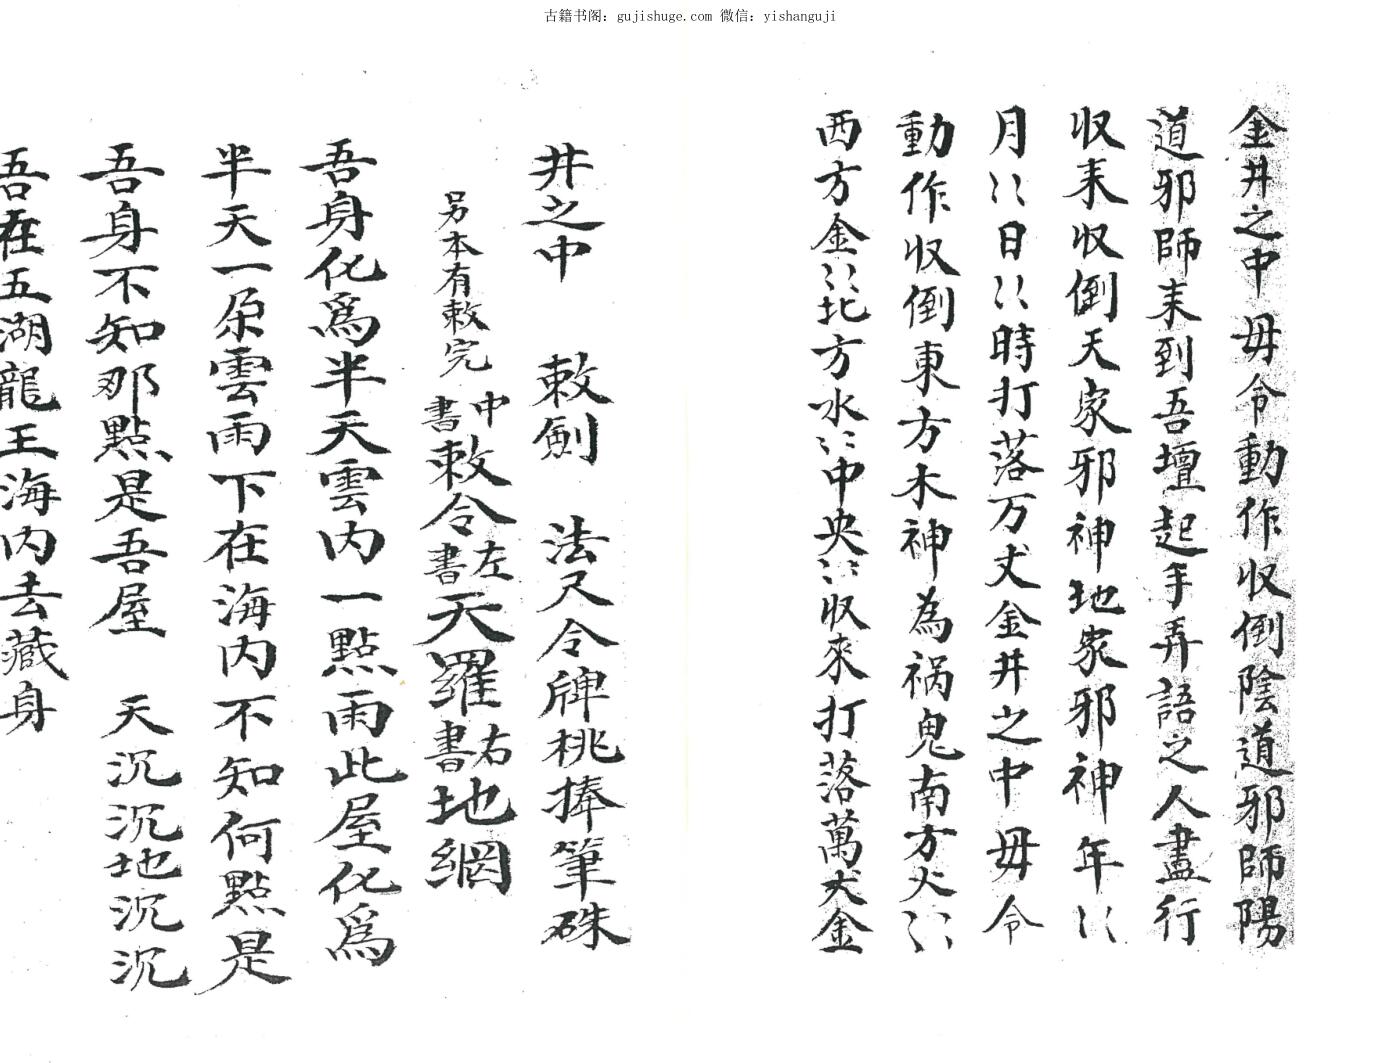 古籍书阁：gujishuge.com 微信：yishanguji
金井之中毋令動作収倒陰道邪師陽
道邪師来到吾壇起手弄語之人盡行
収来収倒天家邪神地家邪神年〻
月〻日〻時打落万丈金井之中毋令
動作収倒東方木神為祸鬼南方火〻
西方金〻北方水〻中央〻収來打落萬丈金
井之中　敕劍　法尺令牌桃捧筆硃
另本有敕完中書敕令左書天羅右書地網
吾身化爲半天雲内一點雨此屋化爲
半天一朶雲雨下在海内不知何點是
吾身不知那點是吾屋　天沉沉地沉沉
吾在五湖龍王海内去藏身